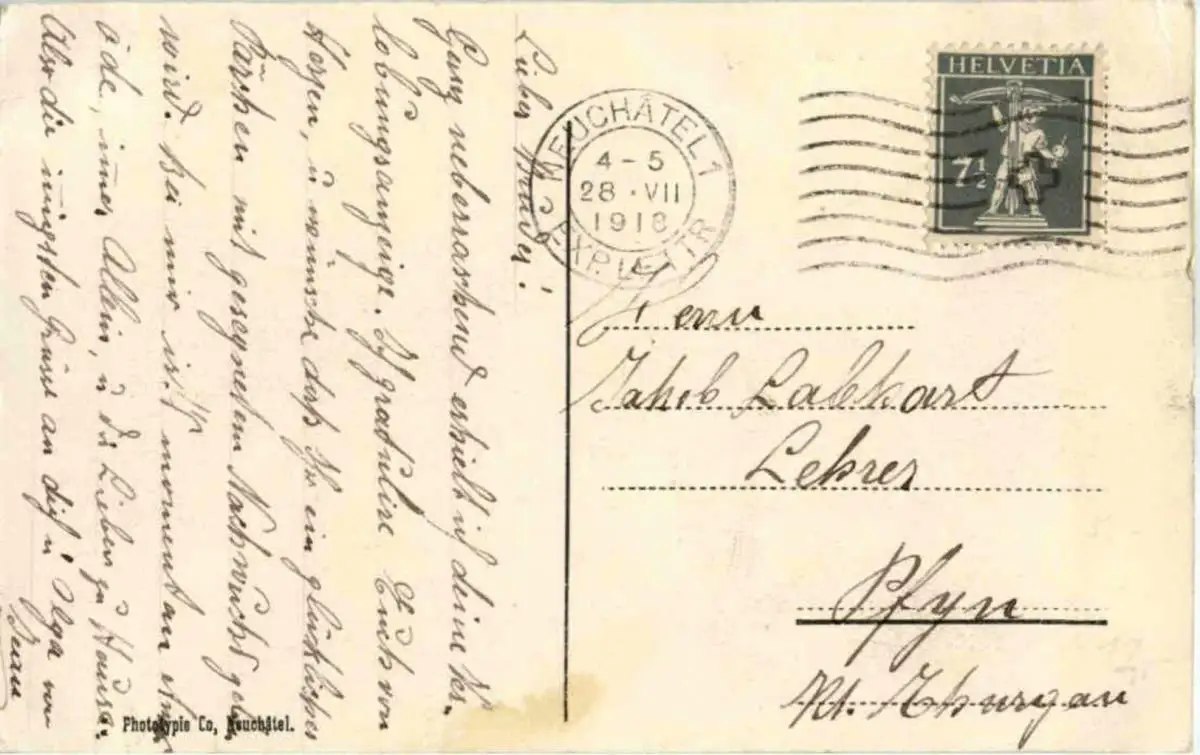 Lieber Bruder!
Ganz ueberraschend erhielt ich deine Ver-
lobungsanzeige. Ich gratulire Euch von
Herzen, u wünsche dass Ihr ein glückliches
Pärchen mit gesegnetem Nachwuchs geben
wird. Bei mir ist moment an
öde, immer Allein, u die Lieben zu Hause.
Also die innigsten Grüsse an dich u Olga von
Phototypie Co, Neuchâtel.
NEUCHÂTEL 1
4-5
28.VII
1918
EXP. LETTR
HELVETIA
7 1/2
Herrn
Jakob Labhart
Lehrer
Pfyn
Kt. Thurgau